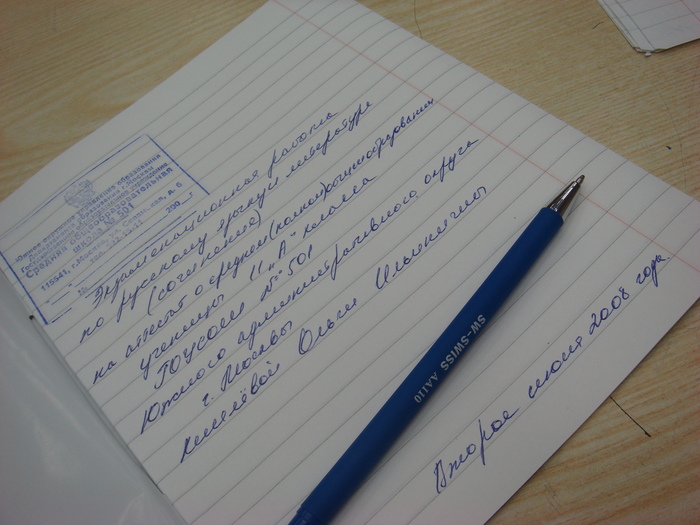 Южное окружное управление образования
Средняя общеобразовательная
школа № 501
115541, г. Москва,
200
Экзаменационная работа
по русскому языку и литературе
(сочинение)
на аттестат о среднем (полном) образовании
ученицы 11 „А" класса
ГОУ СОШ № 501
Южного административного округа
г. Москвы
Ольги Ильиничны
Второе июня 2008 года
SW-SWISS AA110